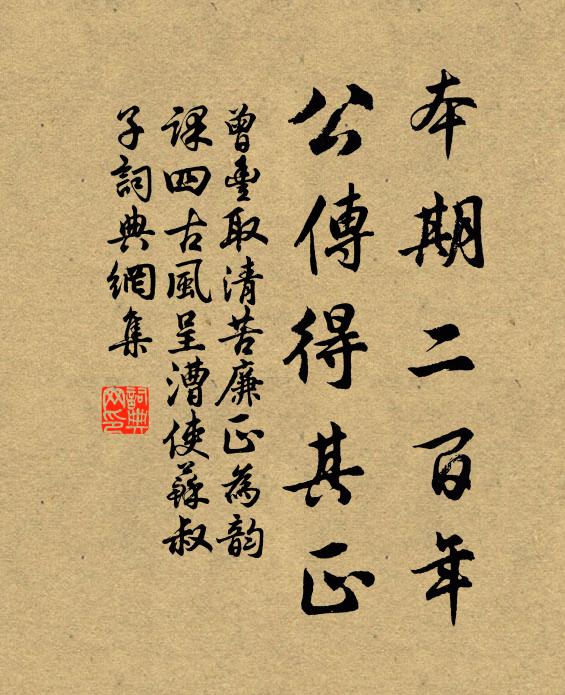 本期二百年
公傳得其正
曾豐取清苦廉正為韵
課四古風呈漕使蘇叔
子詞典網集
詞典網印